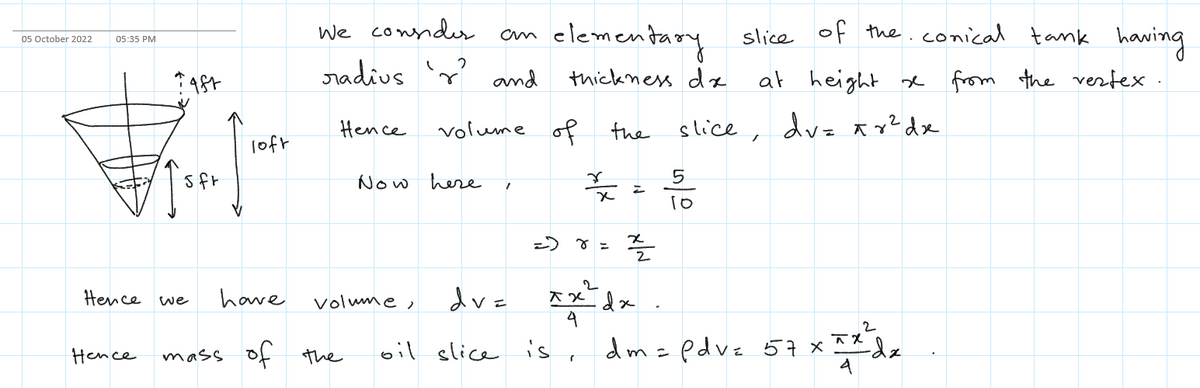 05 October 2022 05:35 PM
We consider an elementary slice of the conical tank having
radius 'r' and thickness dx at height x from the vertex.
4ft
10ft
5ft
Hence volume of the slice, dv = πr²dx
Now here, r/x = 5/10
=> r = x/2
Hence we have volume, dv = πx²/4 dx.
Hence mass of the oil slice is, dm = ρdv = 57 × πx²/4 dx.